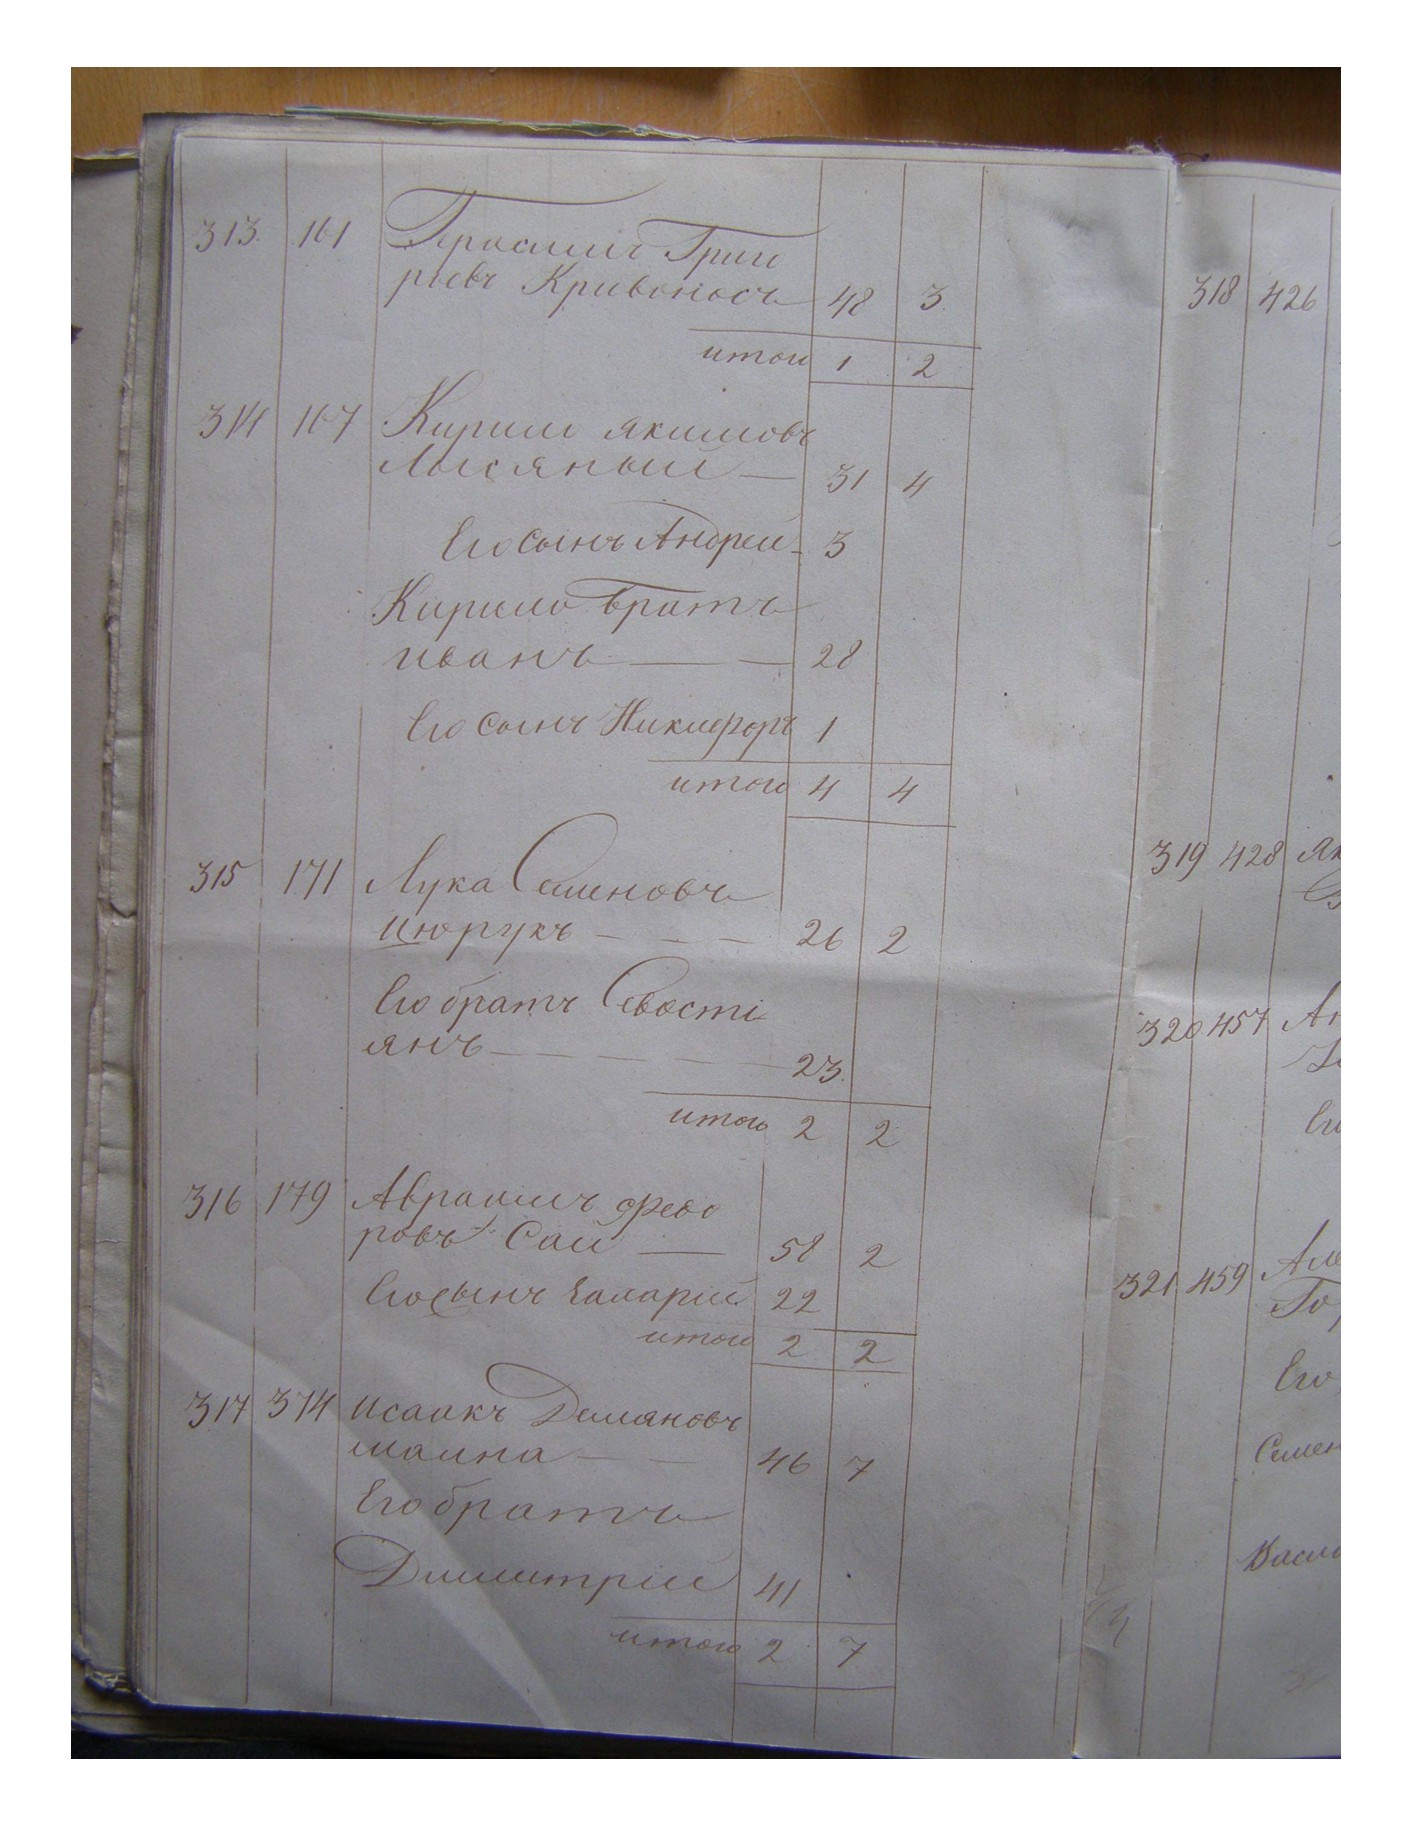 313. 161 Герасимъ Григо
рьевъ Кривоносъ 48 3.
итого 1 2
314 167 Кирило Якимовъ
Лисяный — 31 4
Его сынъ Андрей - 3
Кирило братъ
Иванъ — — 28
Его сынъ Никифоръ 1
итого 4 4
315 171 Лука Семеновъ
Цюрукъ — — — 26 2
Его братъ Севасті
янъ — — — — 23.
итого 2 2
316 179 Аврамъ Федо
ровъ Сай — 58 2
Его сынъ Захарій 22
итого 2 2
317 374 Исаакъ Демяновъ
46 7
Его братъ
Димитрій 41
итого 2 7
318 426
319 428 Як
320 457 Ан
321 459 Але
Го
Его
Семен
Васи